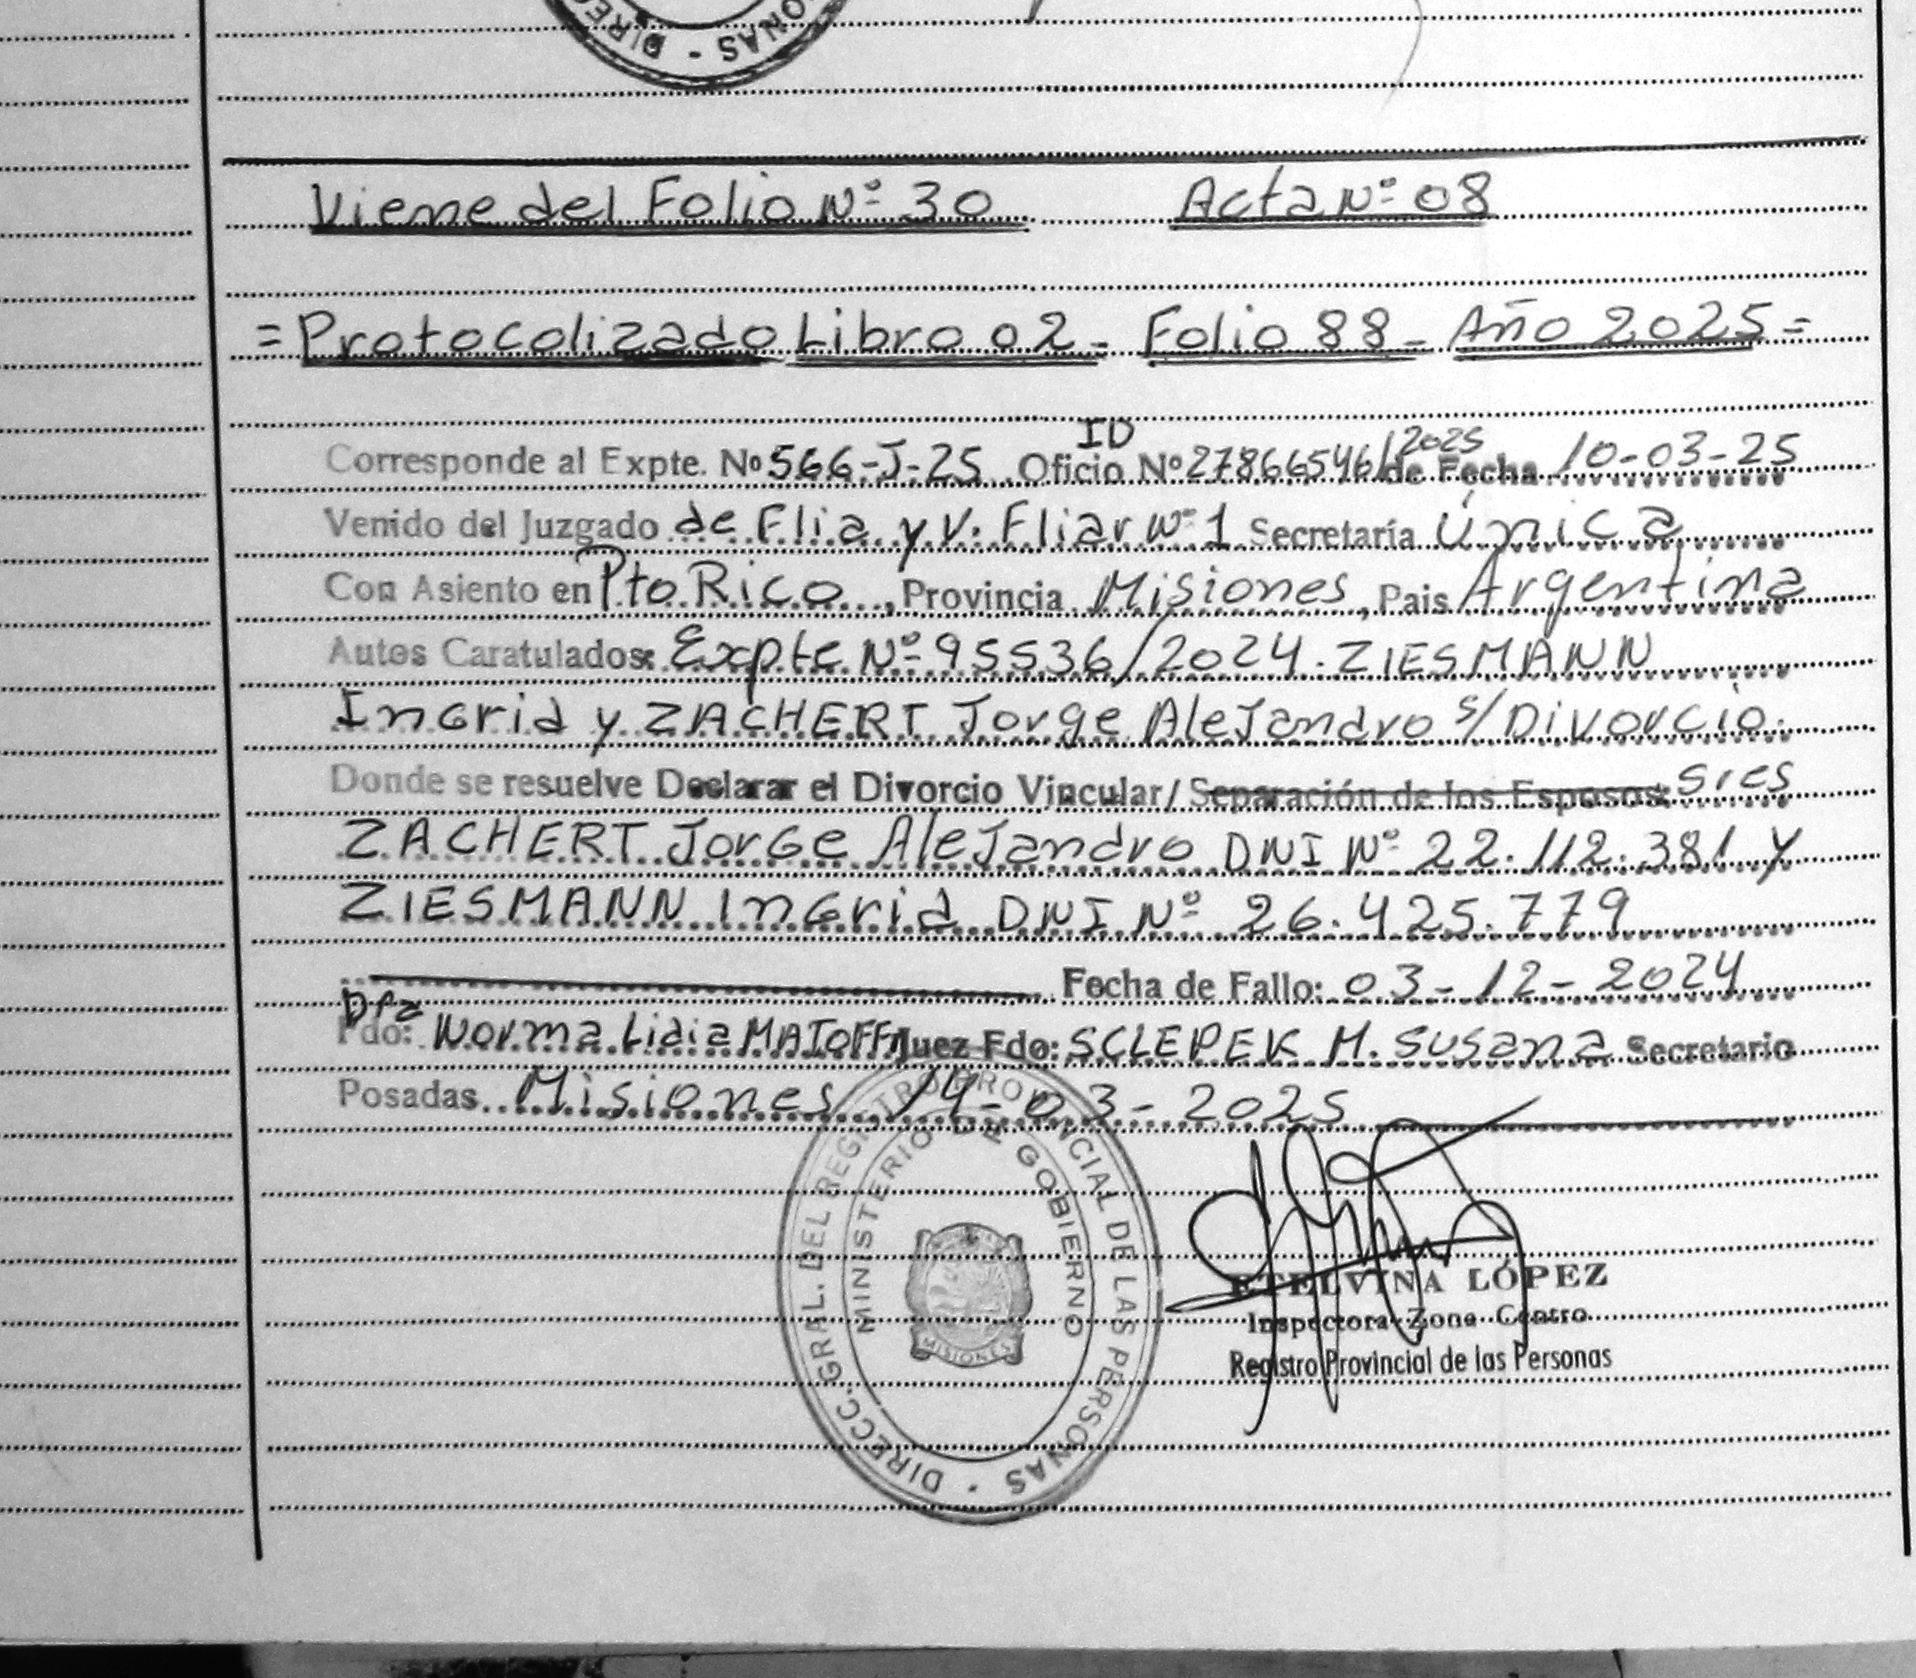 DIREC ONAS -
Viene del Folio Nº 30 Acta Nº 08
= Protocolizado Libro 02 - Folio 88 - Año 2025 =
Corresponde al Expte. Nº 566-J-25 Oficio ID Nº 27866546/2025 de Fecha 10-03-25
Venido del Juzgado de Flia y V. Fliar Nº 1 Secretaría Única
Con Asiento en Pto Rico, Provincia Misiones, Pais Argentina
Autos Caratulados: Expte Nº 95536/2024. ZIESMANN
Ingrid y ZACHERT Jorge Alejandro s/ Divorcio.
Donde se resuelve Declarar el Divorcio Vincular/ Separación de los Esposos: Sres
ZACHERT Jorge Alejandro DNI Nº 22.112.381 y
ZIESMANN Ingrid DNI Nº 26.425.779
Fecha de Fallo: 03-12-2024
Dra
Fdo: Norma Lidia MATOFF Juez Fdo: SCLEPEK M. Susana Secretario
Posadas Misiones 14-03-2025
DIRECC. GRAL. DEL REGISTRO PROVINCIAL DE LAS PERSONAS -
MINISTERIO DE GOBIERNO
MISIONES
ETELVINA LÓPEZ
Inspectora Zona Centro
Registro Provincial de las Personas